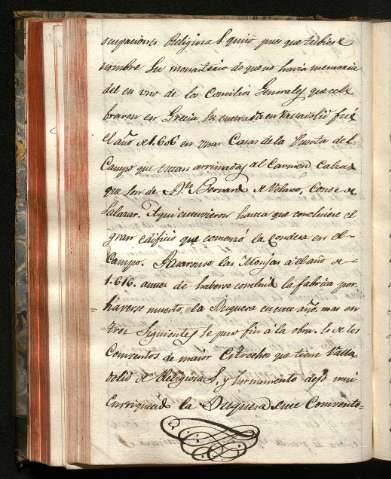 ocupaciones Religiosa S. quiso pues que tubiese
nombre Su monasterio de que no havia memoria
del en uno de los Concilios Generales que cele
braron en Grecia Su
el año de 1606 en unas Casas de la Puerta del
Campo que estan arrimadas al Carmen Calzado
que son de Dn. Bernardo de Velasco, Conde de
Salazar. Aqui estuvieron hasta que concluiese el
gran edificio que comenzó la Condesa en el
Campo. Pasaronse las Monjas a el año de
1.616. antes de haberse concluido la fabrica por
haverse muerto, la Duquesa en este año, mas en
tres Siguientes se puso fin a la obra. Es de los
Conventos de maior Estrechez que tiene Valla
dolid de Religiosas, y Ornamento dejó mui
Enrriquecido la Duquesa este Convento